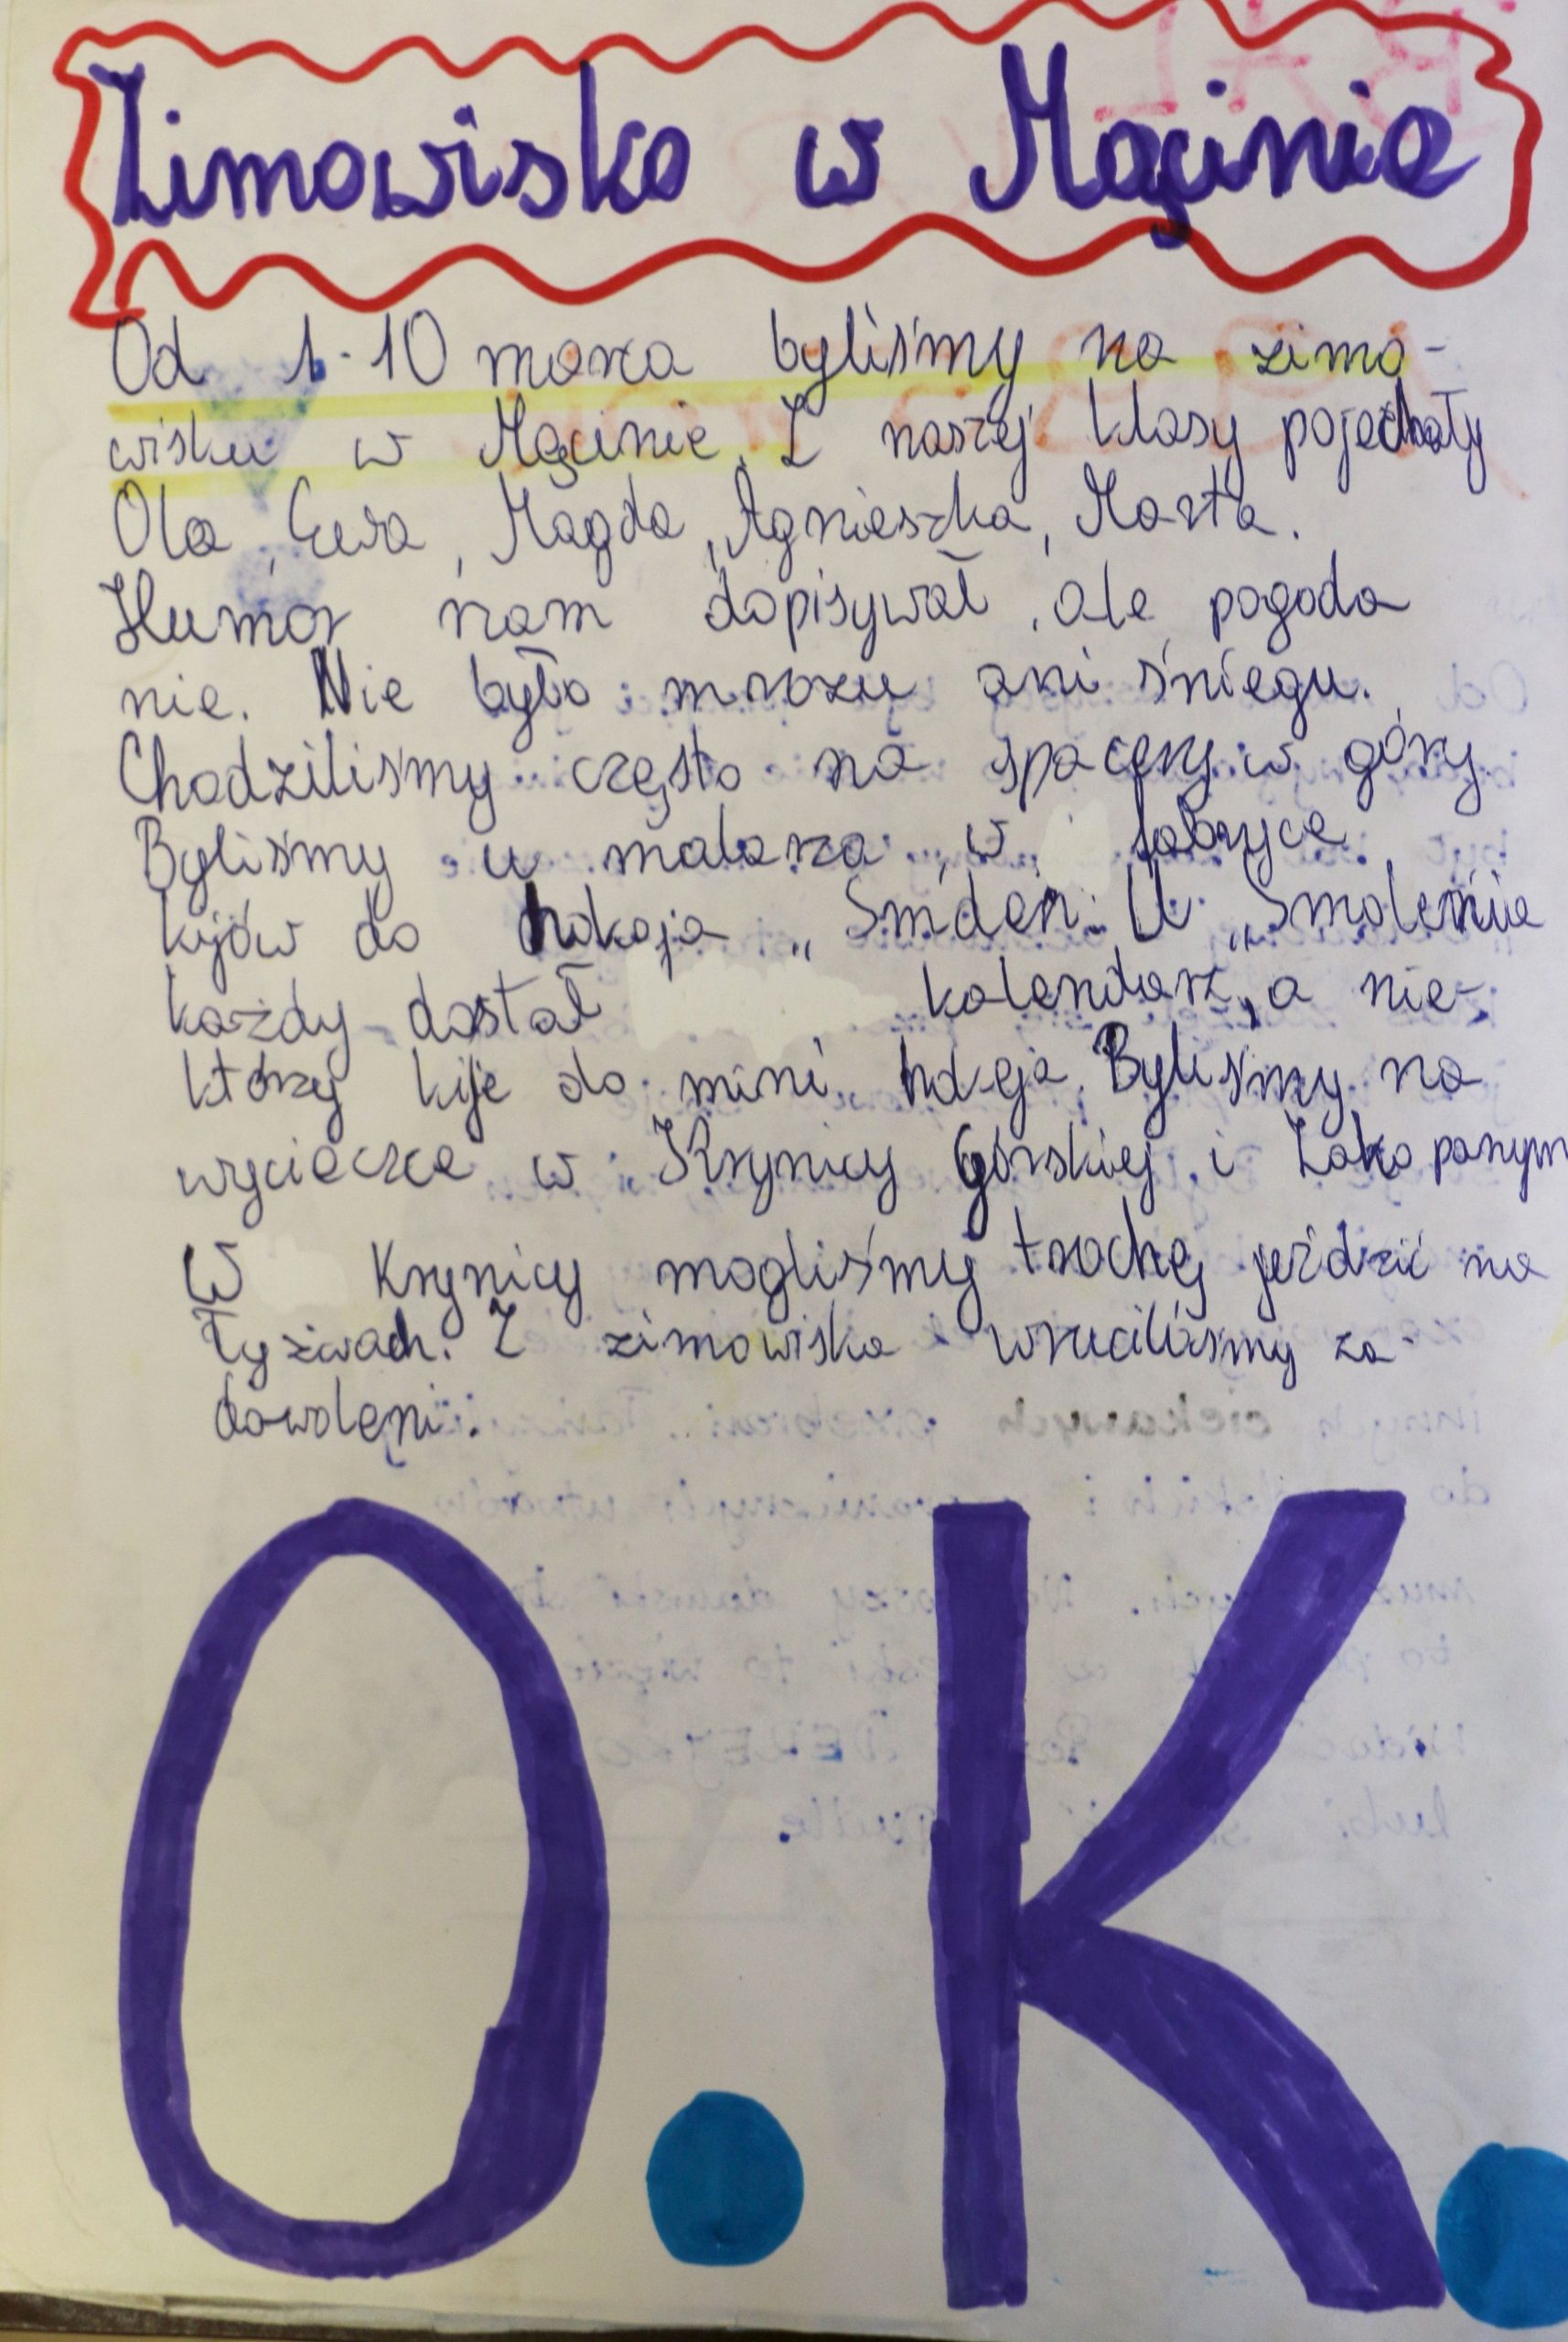 Zimowisko w Męcinie
Od 1-10 marca byliśmy na zimo-
wisku w Męcinie. Z naszej klasy pojechały
Ola, Ewa, Magda, Agnieszka, Marta.
Humor nam dopisywał, ale pogoda
nie. Nie było mrozu ani śniegu.
Chodziliśmy często na spacery w góry.
Byliśmy u malarza, w fabryce
kijów do hokeja „Smoleń. U „Smolenia
każdy dostał kalendarz, a nie-
którzy kije do mini hokeja. Byliśmy na
wycieczce w Krynicy Górskiej i Zakopanym
W Krynicy mogliśmy trochę jeździć na
łyżwach. Z zimowiska wróciliśmy za-
dowoleni.
O.K.